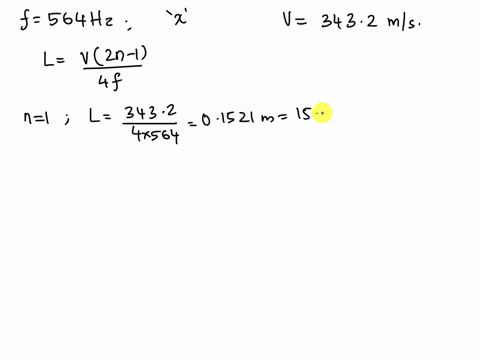 f = 564 Hz ; 'x' V = 343.2 m/s.
L = V(2n-1) / 4f
n=1 ; L = 343.2 / 4×564 = 0.1521 m = 15..